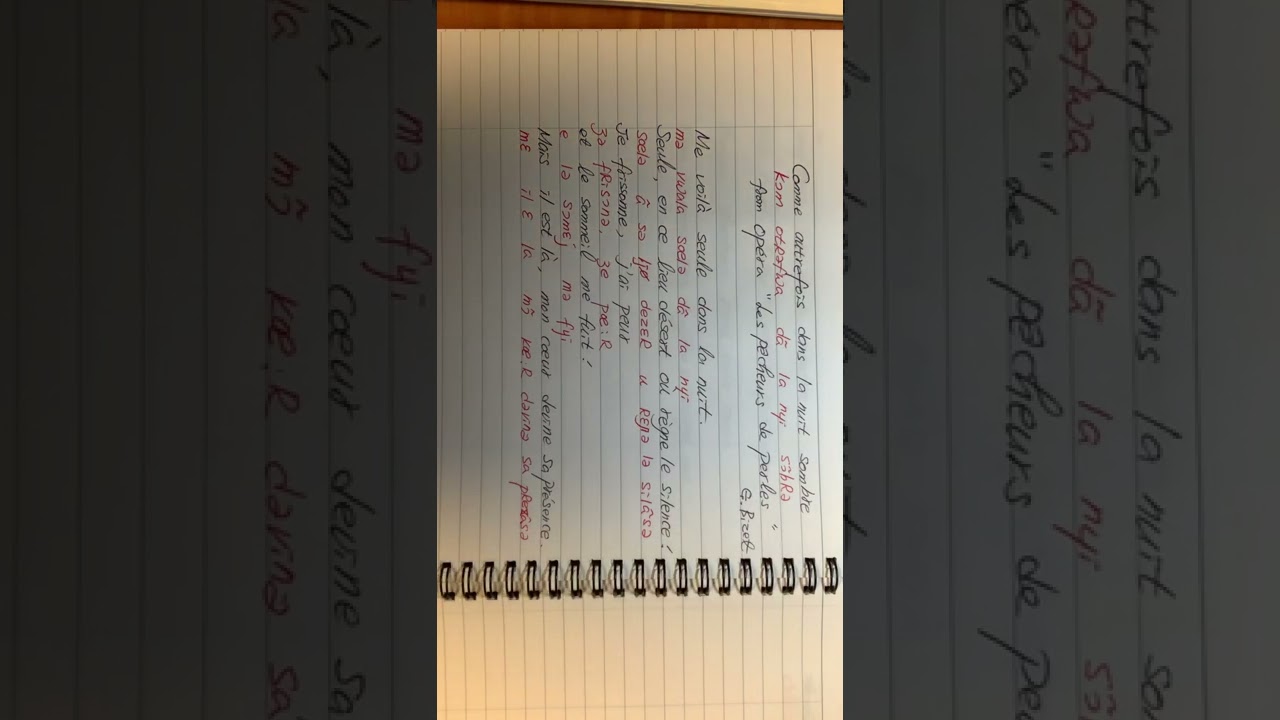 Comme autrefois dans la nuit sombre
kɔm otRəfwa dã la nɥi sɔ̃bRə
from opéra "des pecheurs de perles"
G. Bizet
Me voilà seule dans la nuit.
mə vwala sœlə dã la nɥi
Seule, en ce lieu désert ou règne le silence!
sœlə ã sə ljø dezɛR u Rɛɲə lə silãsə
Je frissonne, j'ai peur
ʒə fRisɔnə, ʒe pœ:R
et le sommeil me fuit!
e lə sɔmɛj mə fɥi
Mais il est là, mon cœur devine sa présence.
mɛ il ɛ la mɔ̃ kœ:R dəvinə sa pRezãsə